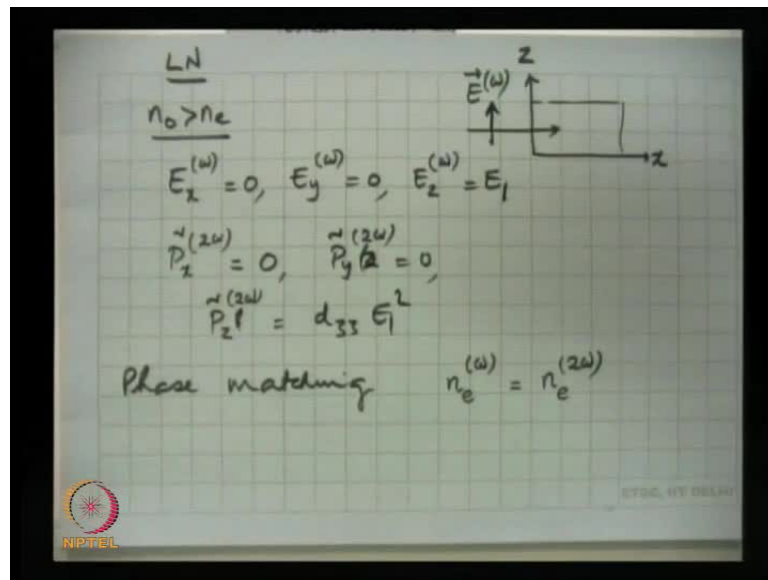 LN
n₀ > nₑ
z
E⃗^(ω)
x
E_x^(ω) = 0, E_y^(ω) = 0, E_z^(ω) = E₁
P̃_x^(2ω) = 0, P̃_y^(2ω) = 0,
P̃_z^(2ω) = d₃₃ E₁²
Phase matching n_e^(ω) = n_e^(2ω)
ETSC, IIT DELHI
NPTEL